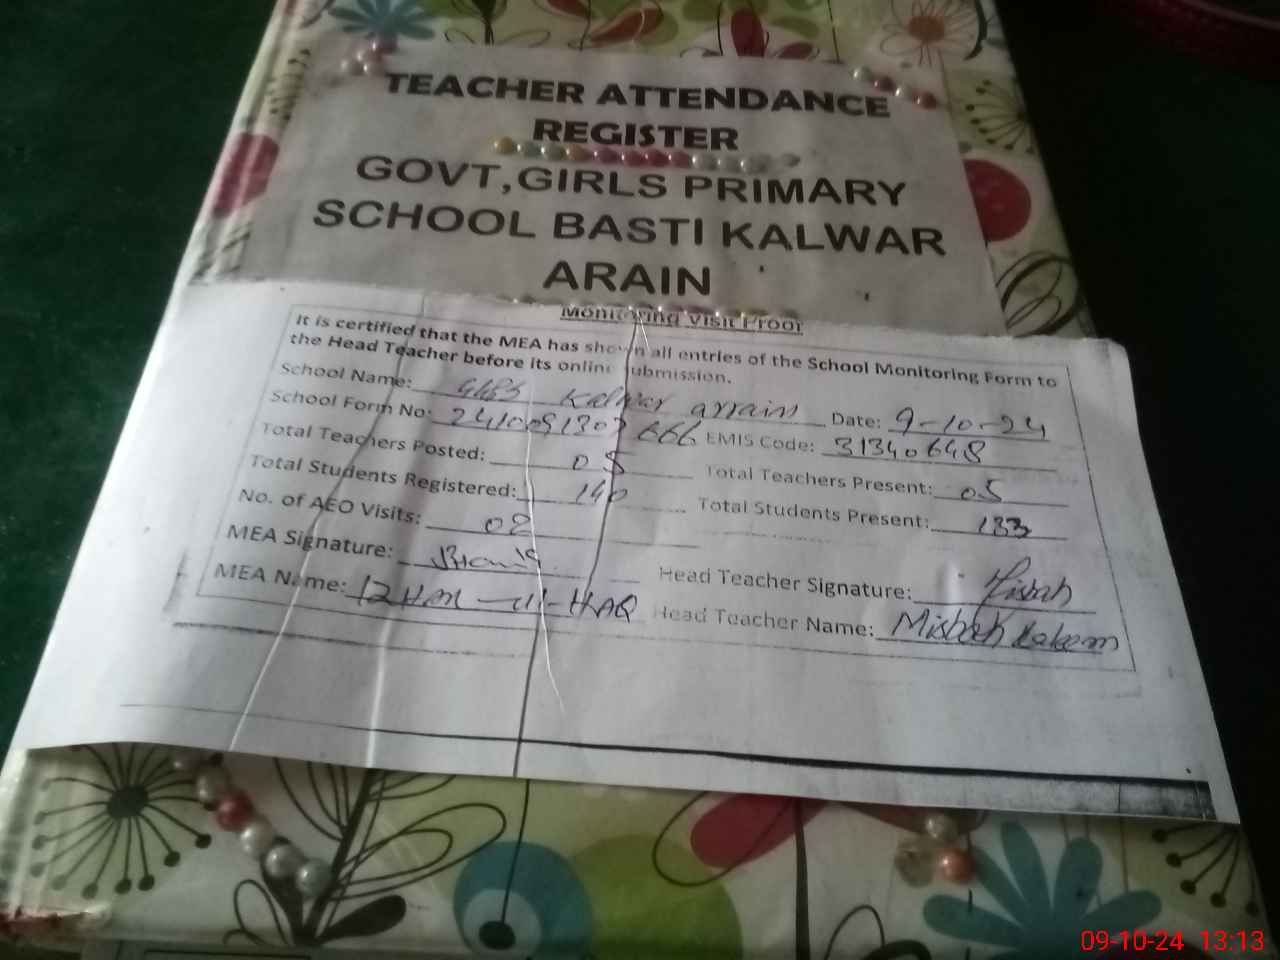 TEACHER ATTENDANCE
REGISTER
GOVT,GIRLS PRIMARY
SCHOOL BASTI KALWAR
ARAIN
Monitoring Visit Proof
It is certified that the MEA has shown all entries of the School Monitoring Form to
the Head Teacher before its online submission.
School Name: GGPS Kalwar arrain Date: 9-10-24
School Form No: 2410091303666 EMIS Code: 31340648
Total Teachers Posted: 05 Total Teachers Present: 05
Total Students Registered: 140 Total Students Present: 133
No. of AEO Visits: 02
MEA Signature: Head Teacher Signature: Misbah
MEA Name: IZHAR-UL-HAQ Head Teacher Name: Misbah Kaleem
09-10-24 13:13